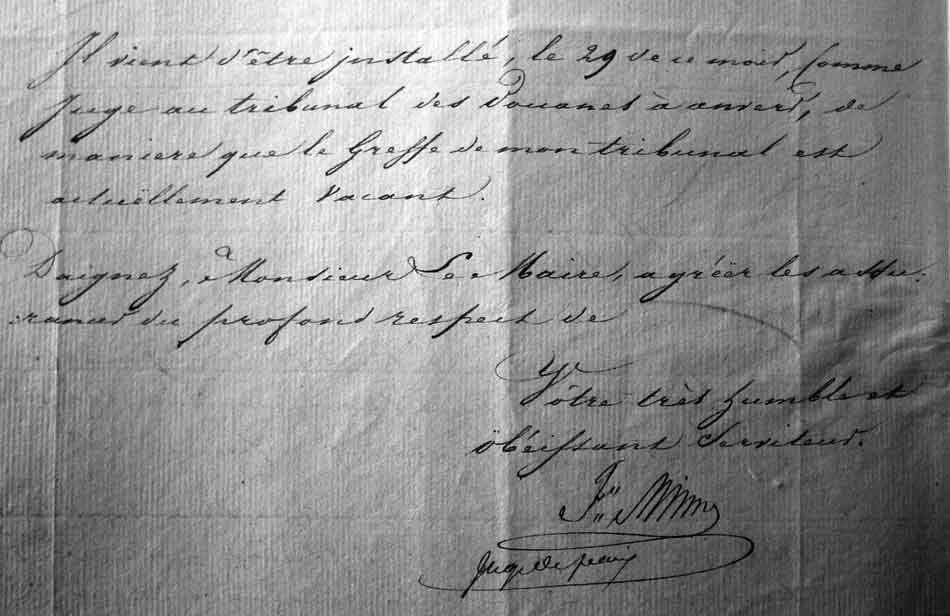 Il vient d'être installé, le 29 de ce mois, Comme
Juge au tribunal des Douanes à anvers, de
maniere que le Greffe de mon tribunal est
actuëllement Vacant.
Daignez, Monsieur Le Maire, agréër les assu-
:rances du profond respect de
Vôtre très humble et
öbéissant Serviteur.
Juge de paix